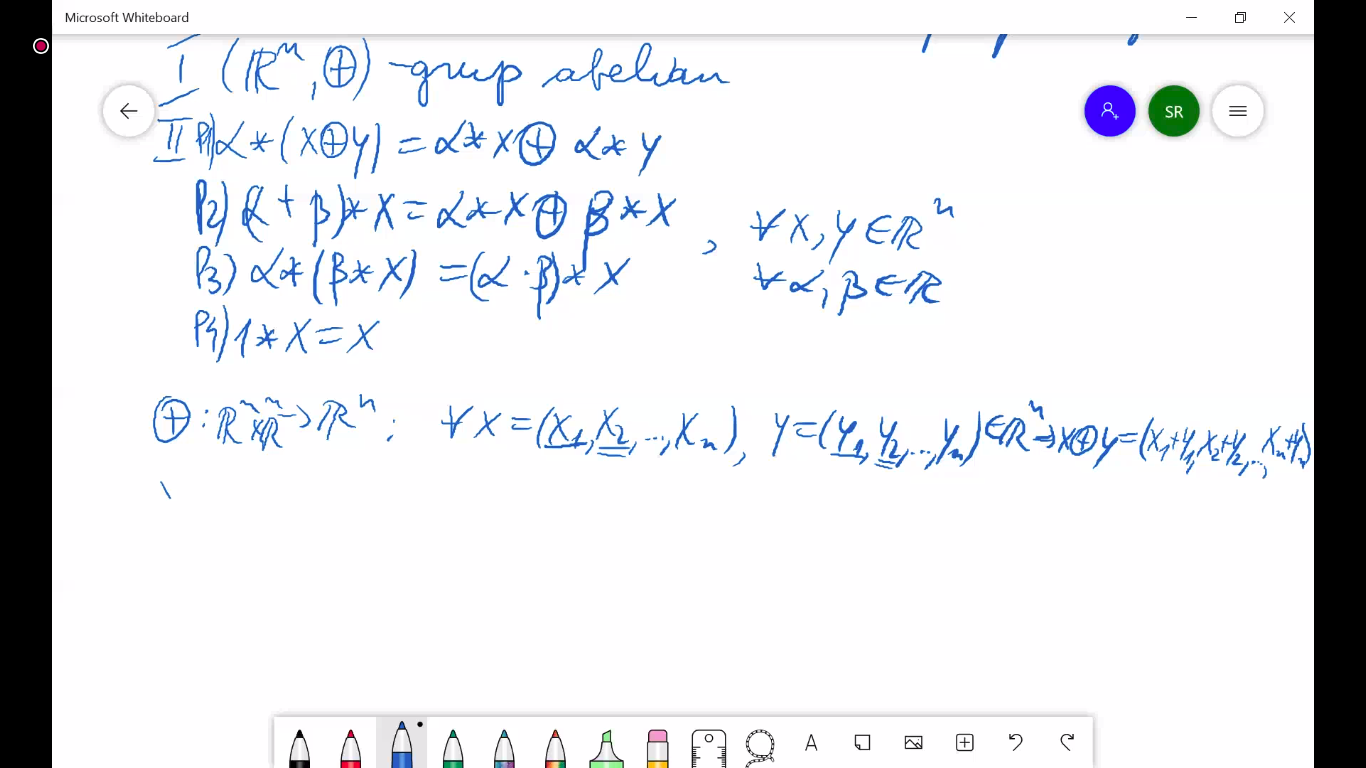 Microsoft Whiteboard
I (ℝⁿ, ⊕) -grup abelian
SR
II P1) α * (x ⊕ y) = α * x ⊕ α * y
P2) (α + β) * x = α * x ⊕ β * x
, ∀ x, y ∈ ℝⁿ
P3) α * (β * x) = (α · β) * x
∀ α, β ∈ ℝ
P4) 1 * x = x
⊕ : ℝⁿ × ℝⁿ → ℝⁿ : ∀ x = (x₁, x₂, ..., xₙ), y = (y₁, y₂, ..., yₙ) ∈ ℝⁿ ⇒ x ⊕ y = (x₁+y₁, x₂+y₂, ..., xₙ+yₙ)
A